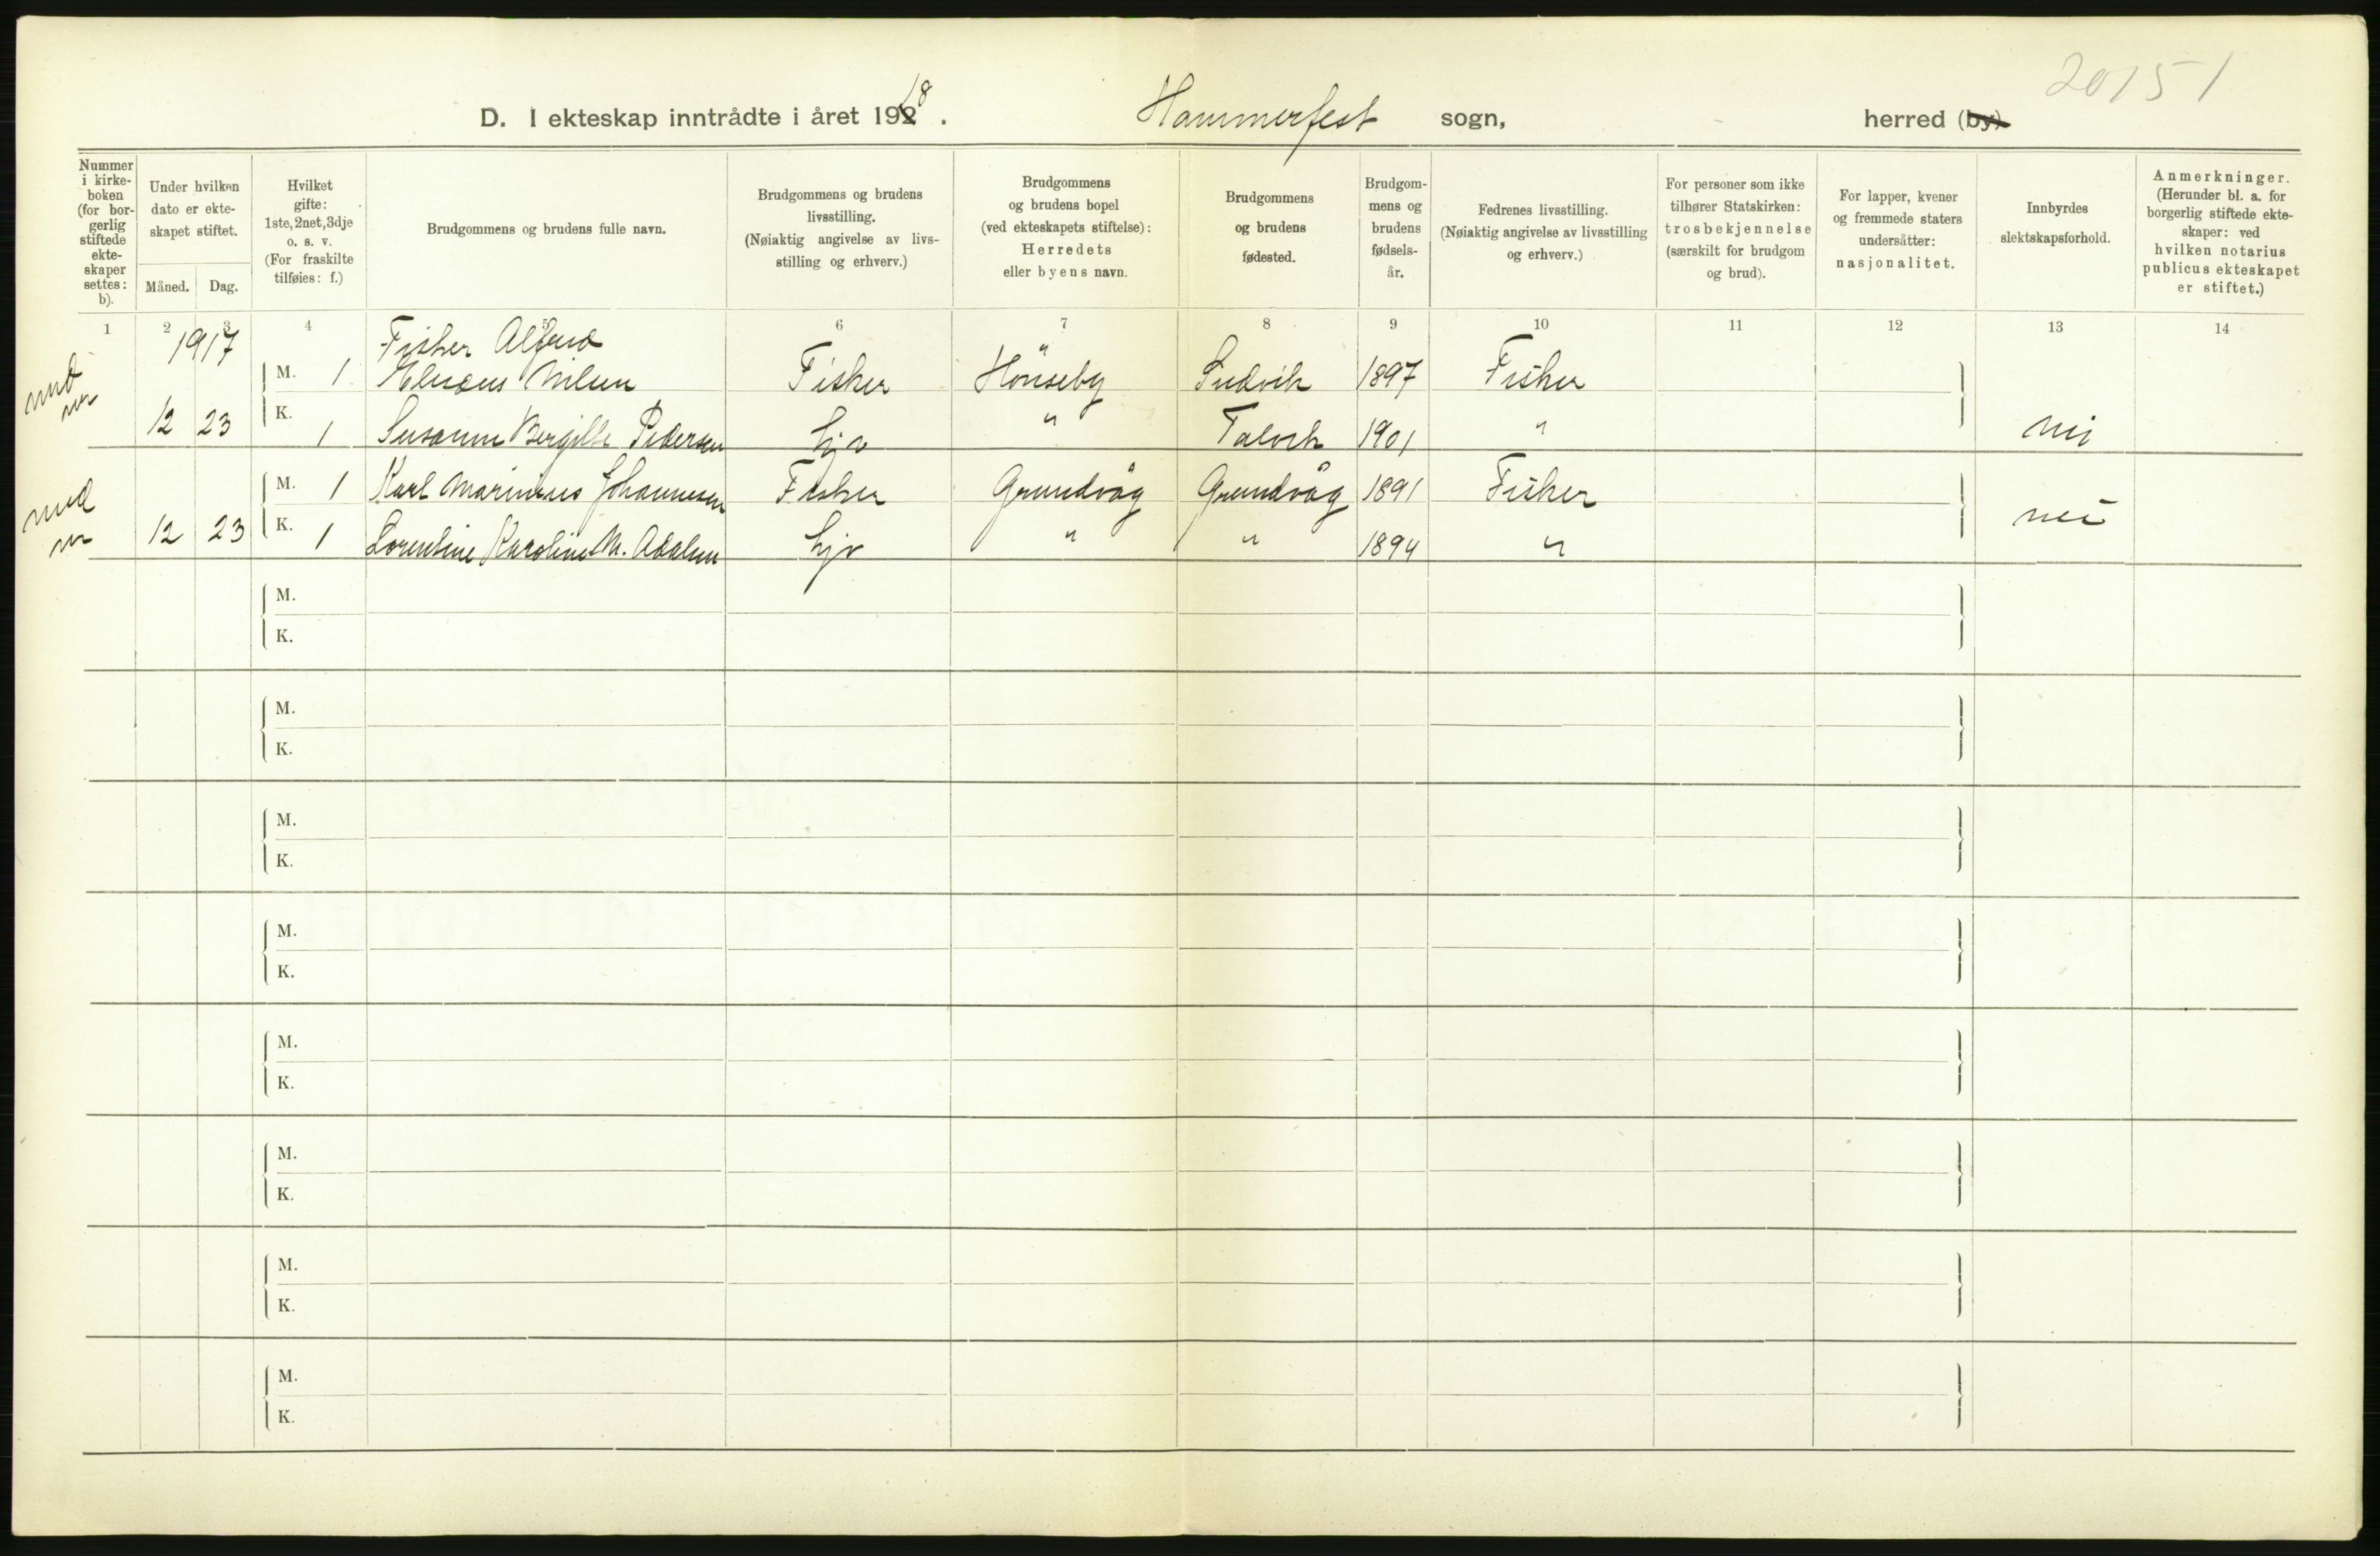 20151
D. I ekteskap inntrådte i året 1918. Hammerfest sogn, herred (by)
Nummer i kirkeboken (for borgerlig stiftede ekteskaper settes: b).
Under hvilken dato er ekteskapet stiftet.
Måned. Dag.
Hvilket gifte: 1ste, 2net, 3dje o. s. v. (For fraskilte tilføies: f.)
Brudgommens og brudens fulle navn.
Brudgommens og brudens livsstilling. (Nøiaktig angivelse av livsstilling og erhverv.)
Brudgommens og brudens bopel (ved ekteskapets stiftelse): Herredets eller byens navn.
Brudgommens og brudens fødested.
Brudgommens og brudens fødselsår.
Fedrenes livsstilling. (Nøiaktig angivelse av livsstilling og erhverv.)
For personer som ikke tilhører Statskirken: trosbekjennelse (særskilt for brudgom og brud).
For lapper, kvener og fremmede staters undersåtter: nasjonalitet.
Innbyrdes slektskapsforhold.
Anmerkninger. (Herunder bl. a. for borgerlig stiftede ekteskaper: ved hvilken notarius publicus ekteskapet er stiftet.)
1 2 3 4 5 6 7 8 9 10 11 12 13 14
1917 Fisker Alfred
M. 1 Nilsen Fisker Hönseby 1897 Fisker
12 23 K. 1 Susanne Bergitte Pedersen " Talvik 1901 " nei
M. 1 Karl Marinius Johannesen Fisker Grundvåg Grundvåg 1891 Fisker
12 23 K. 1 Lorentine Karoline M. " " 1894 " nei
M.
K.
M.
K.
M.
K.
M.
K.
M.
K.
M.
K.
M.
K.
M.
K.